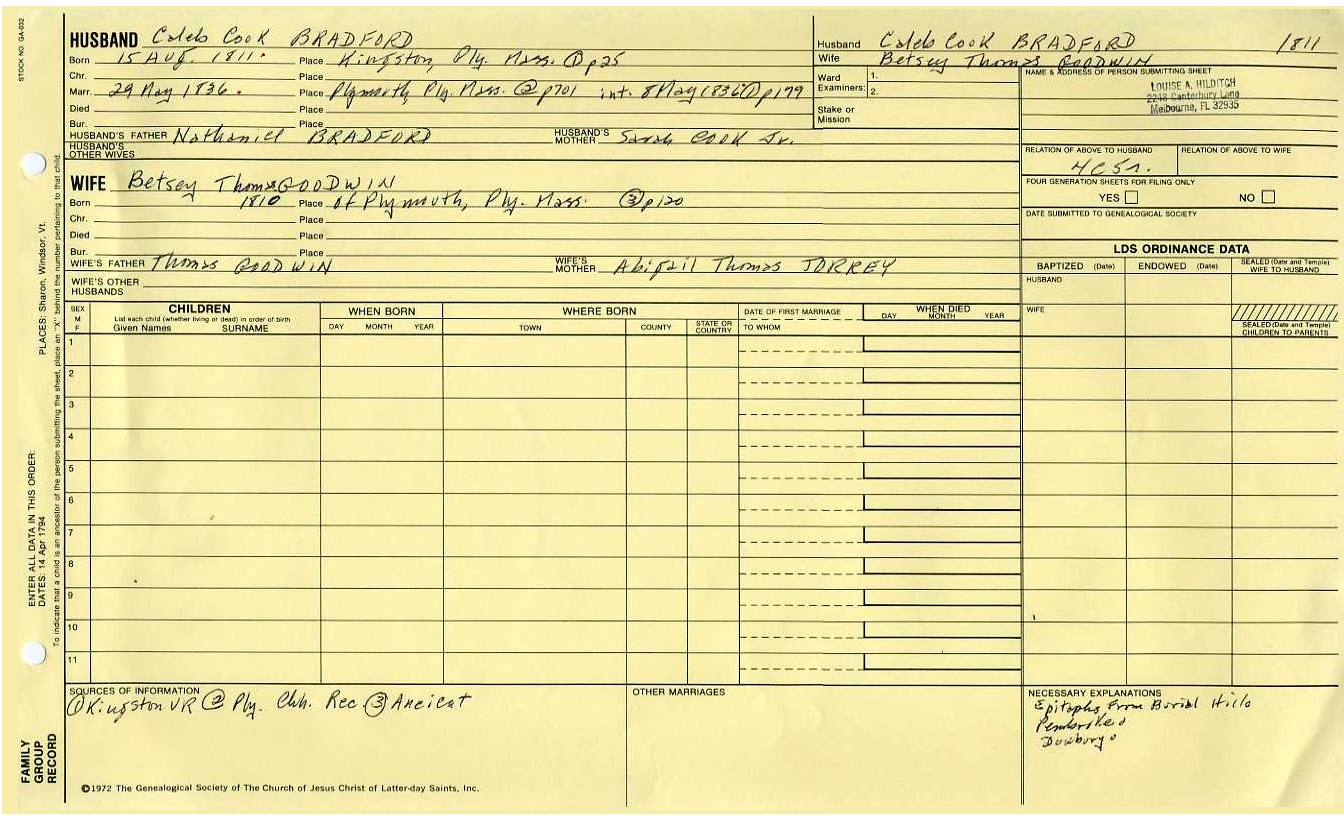 STOCK NO. GA-032
HUSBAND Caleb Cook BRADFORD
Born 15 Aug. 1811. Place Kingston, Ply. Mass. ① p25
Chr. Place
Marr. 29 May 1836. Place Plymouth, Ply. Mass. ② p701 int. 8 May 1836 ① p179
Died Place
Bur. Place
HUSBAND'S FATHER Nathaniel BRADFORD HUSBAND'S MOTHER Sarah COOK Jr.
HUSBAND'S OTHER WIVES
WIFE Betsey Thomas GOODWIN
Born 1810 Place of Plymouth, Ply. Mass. ③ p120
Chr. Place
Died Place
Bur. Place
WIFE'S FATHER Thomas GOODWIN WIFE'S MOTHER Abigail Thomas TORREY
WIFE'S OTHER HUSBANDS
Husband Caleb Cook BRADFORD 1811
Wife Betsey Thomas GOODWIN
Ward 1.
Examiners: 2.
Stake or
Mission
NAME & ADDRESS OF PERSON SUBMITTING SHEET
LOUISE A. HILDITCH
2248 Canterbury Lane
Melbourne, FL 32935
RELATION OF ABOVE TO HUSBAND RELATION OF ABOVE TO WIFE
4C5r.
FOUR GENERATION SHEETS FOR FILING ONLY
YES NO
DATE SUBMITTED TO GENEALOGICAL SOCIETY
LDS ORDINANCE DATA
BAPTIZED (Date) ENDOWED (Date) SEALED (Date and Temple) WIFE TO HUSBAND
HUSBAND
WIFE
SEALED (Date and Temple) CHILDREN TO PARENTS
SEX M F
CHILDREN
List each child (whether living or dead) in order of birth
Given Names SURNAME
WHEN BORN
DAY MONTH YEAR
WHERE BORN
TOWN COUNTY STATE OR COUNTRY
DATE OF FIRST MARRIAGE
TO WHOM
WHEN DIED
DAY MONTH YEAR
1
2
3
4
5
6
7
8
9
10
11
SOURCES OF INFORMATION
① Kingston VR ② Ply. Chh. Rec ③ Ancient
OTHER MARRIAGES
NECESSARY EXPLANATIONS
Epitaphs From Burial Hills
Pembroke
Duxbury
©1972 The Genealogical Society of The Church of Jesus Christ of Latter-day Saints, Inc.
FAMILY
GROUP
RECORD
ENTER ALL DATA IN THIS ORDER:
DATES: 14 Apr 1794
PLACES: Sharon, Windsor, Vt.
To indicate that a child is an ancestor of the person submitting the sheet, place an "X" behind the number pertaining to that child.